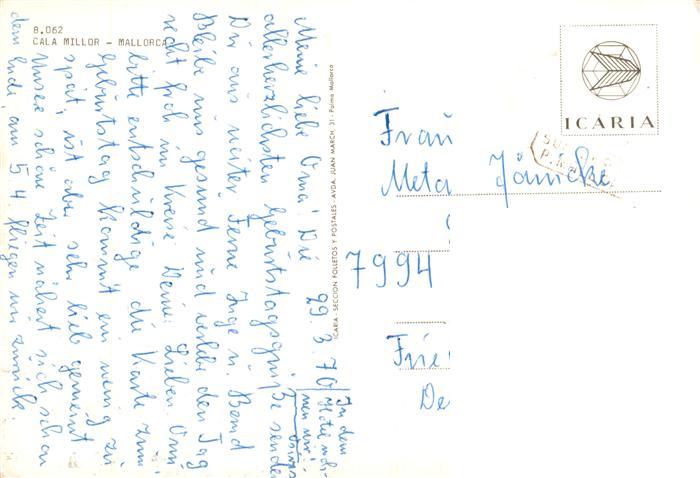 8.062
CALA MILLOR - MALLORCA
29.3.70
Meine liebe Oma! Die
allerherzlichsten Geburtstagsgrüße senden
Dir aus weiter Ferne Inge u. Bernd
Bleibe uns gesund und verlebe den Tag
recht froh im Kreise Deiner Lieben. Omi,
bitte entschuldige die Karte zum
Geburtstag kommt ein wenig zu
spät, ist aber sehr lieb gemeint
Unsere schöne Zeit nähert sich schon
dem Ende, am 5.4 fliegen wir zurück.
In dem
Hotel
wir!
ICARIA - SECCION FOLLETOS Y POSTALES - AVDA. JUAN MARCH, 31 - Palma Mallorca
ICARIA
Frau
Meta Jänicke
7994
Frie
De